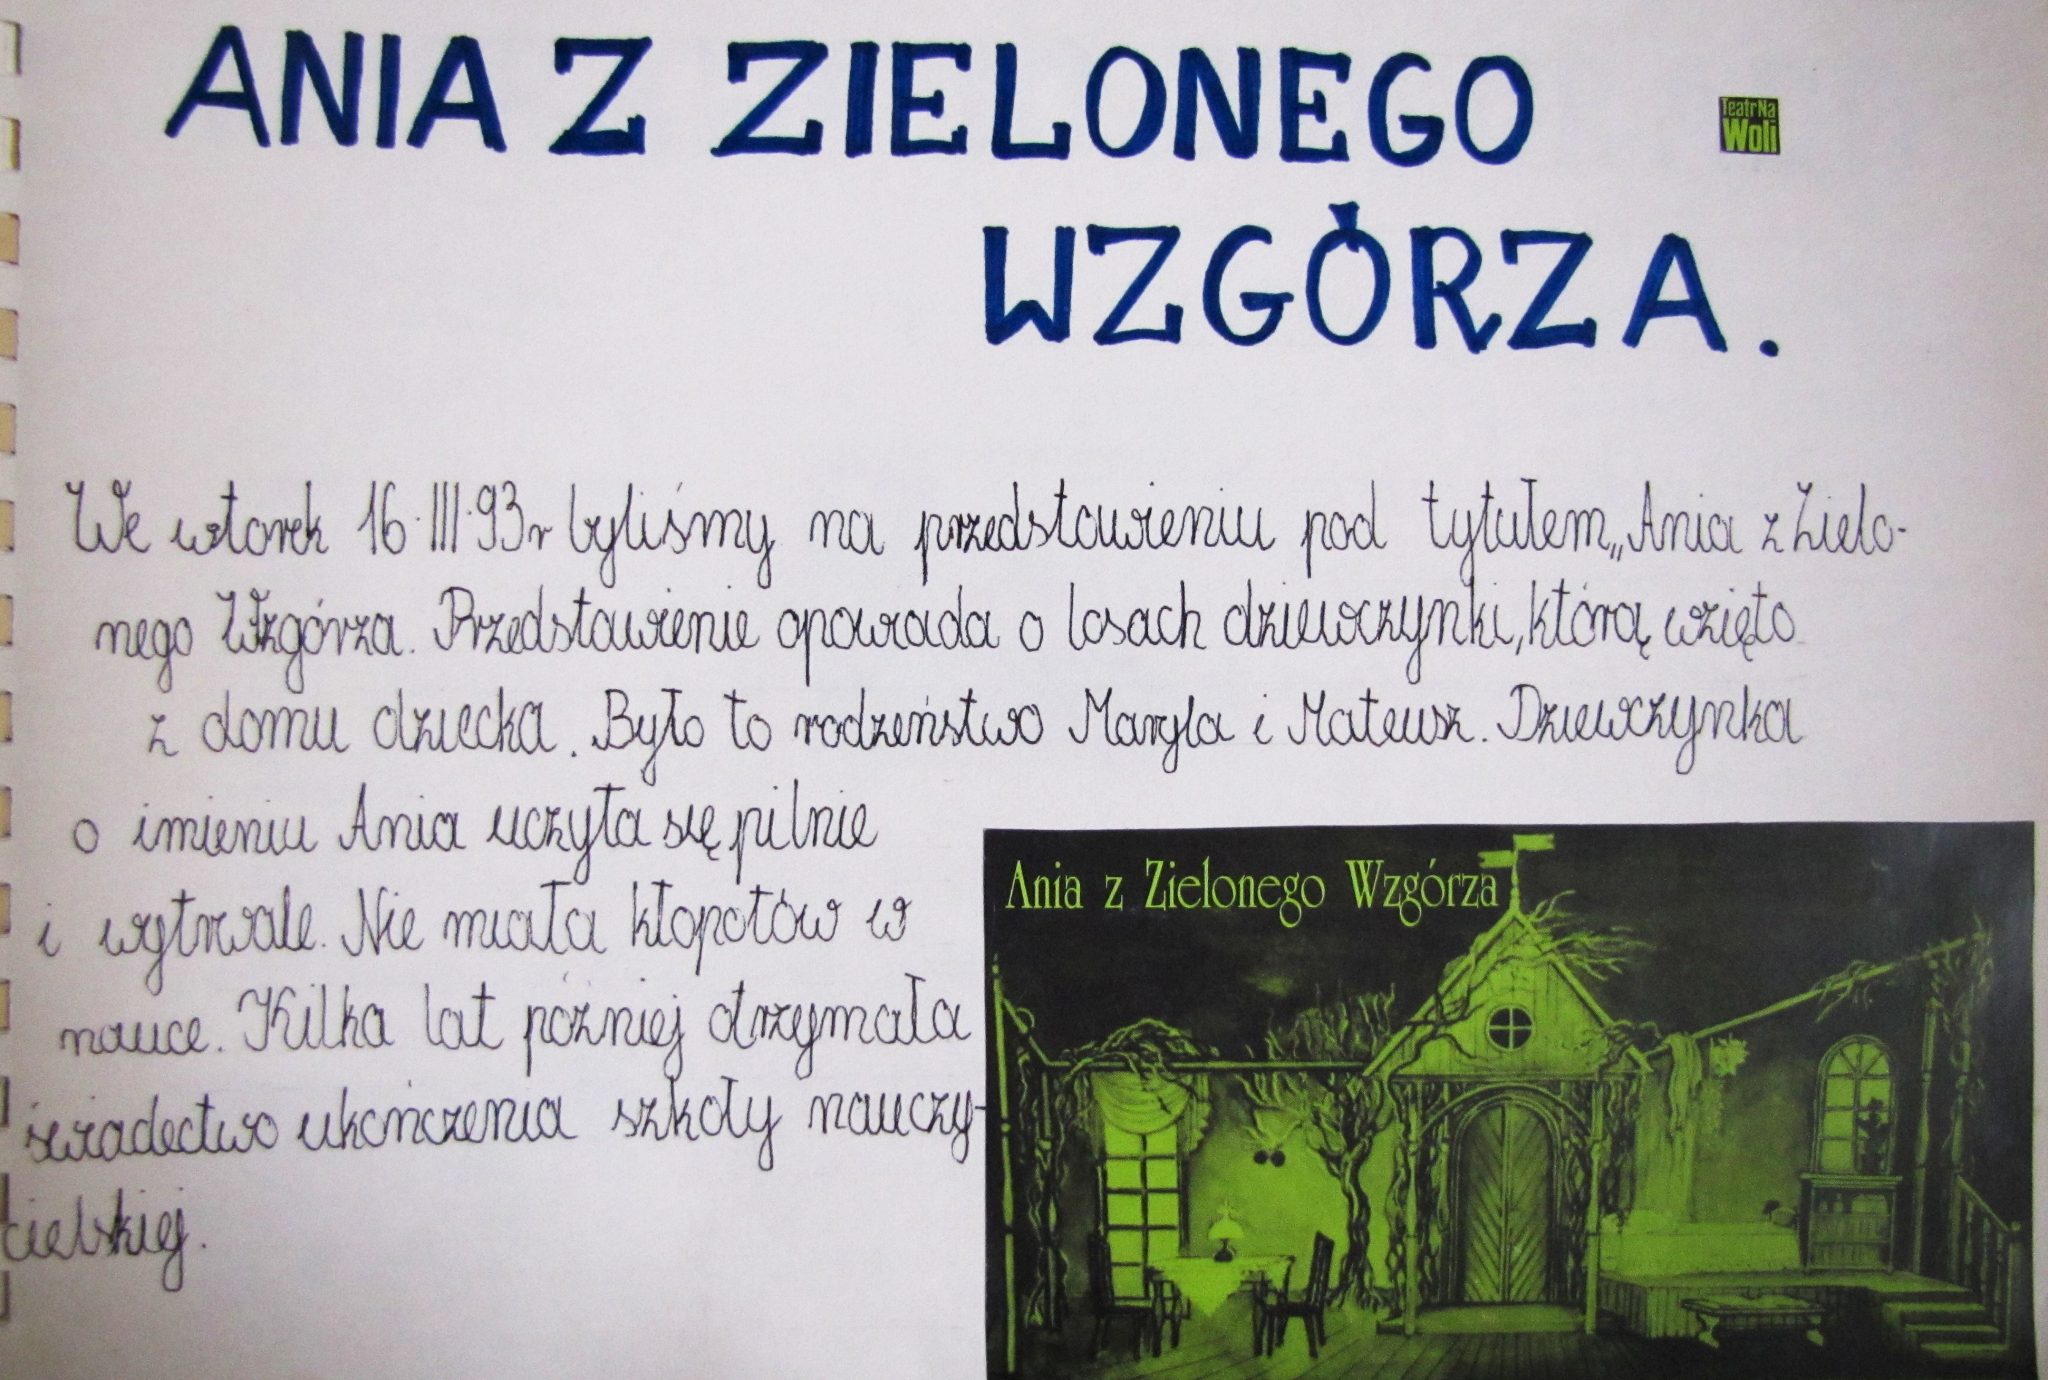 ANIA Z ZIELONEGO
Teatr Na
Woli
WZGÓRZA.
We wtorek 16.III.93r byliśmy na przedstawieniu pod tytułem „Ania z Zielo-
nego Wzgórza. Przedstawienie opowiada o losach dziewczynki, którą wzięto
z domu dziecka. Było to rodzeństwo Maryla i Mateusz. Dziewczynka
o imieniu Ania uczyła się pilnie
i wytrwale. Nie miała kłopotów w
nauce. Kilka lat później otrzymała
świadectwo ukończenia szkoły nauczy-
cielskiej.
Ania z Zielonego Wzgórza